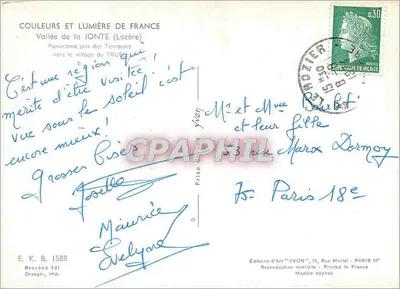 COULEURS ET LUMIÈRE DE FRANCE
Vallée de la JONTE (Lozère)
Panorama pris des Terrasses
vers le village du TRUEL
C'est une région qui
mérite d'être visitée
vue sous le soleil c'est
encore mieux!
Grosses bises
Josette
Maurice
Evelyne
E. K. B. 1588
Procédé 301
Draeger, imp.
yvon
Prise
0,30
REPUBLIQUE FRANÇAISE
LE ROZIER
Mr et Mme
et leur fille
53 rue Marx Dormoy
75 Paris 18e
CPAPHIL
Editions d'Art "YVON", 15, Rue Martel - PARIS 10e
Reproduction interdite - Printed in France
Modèle déposé